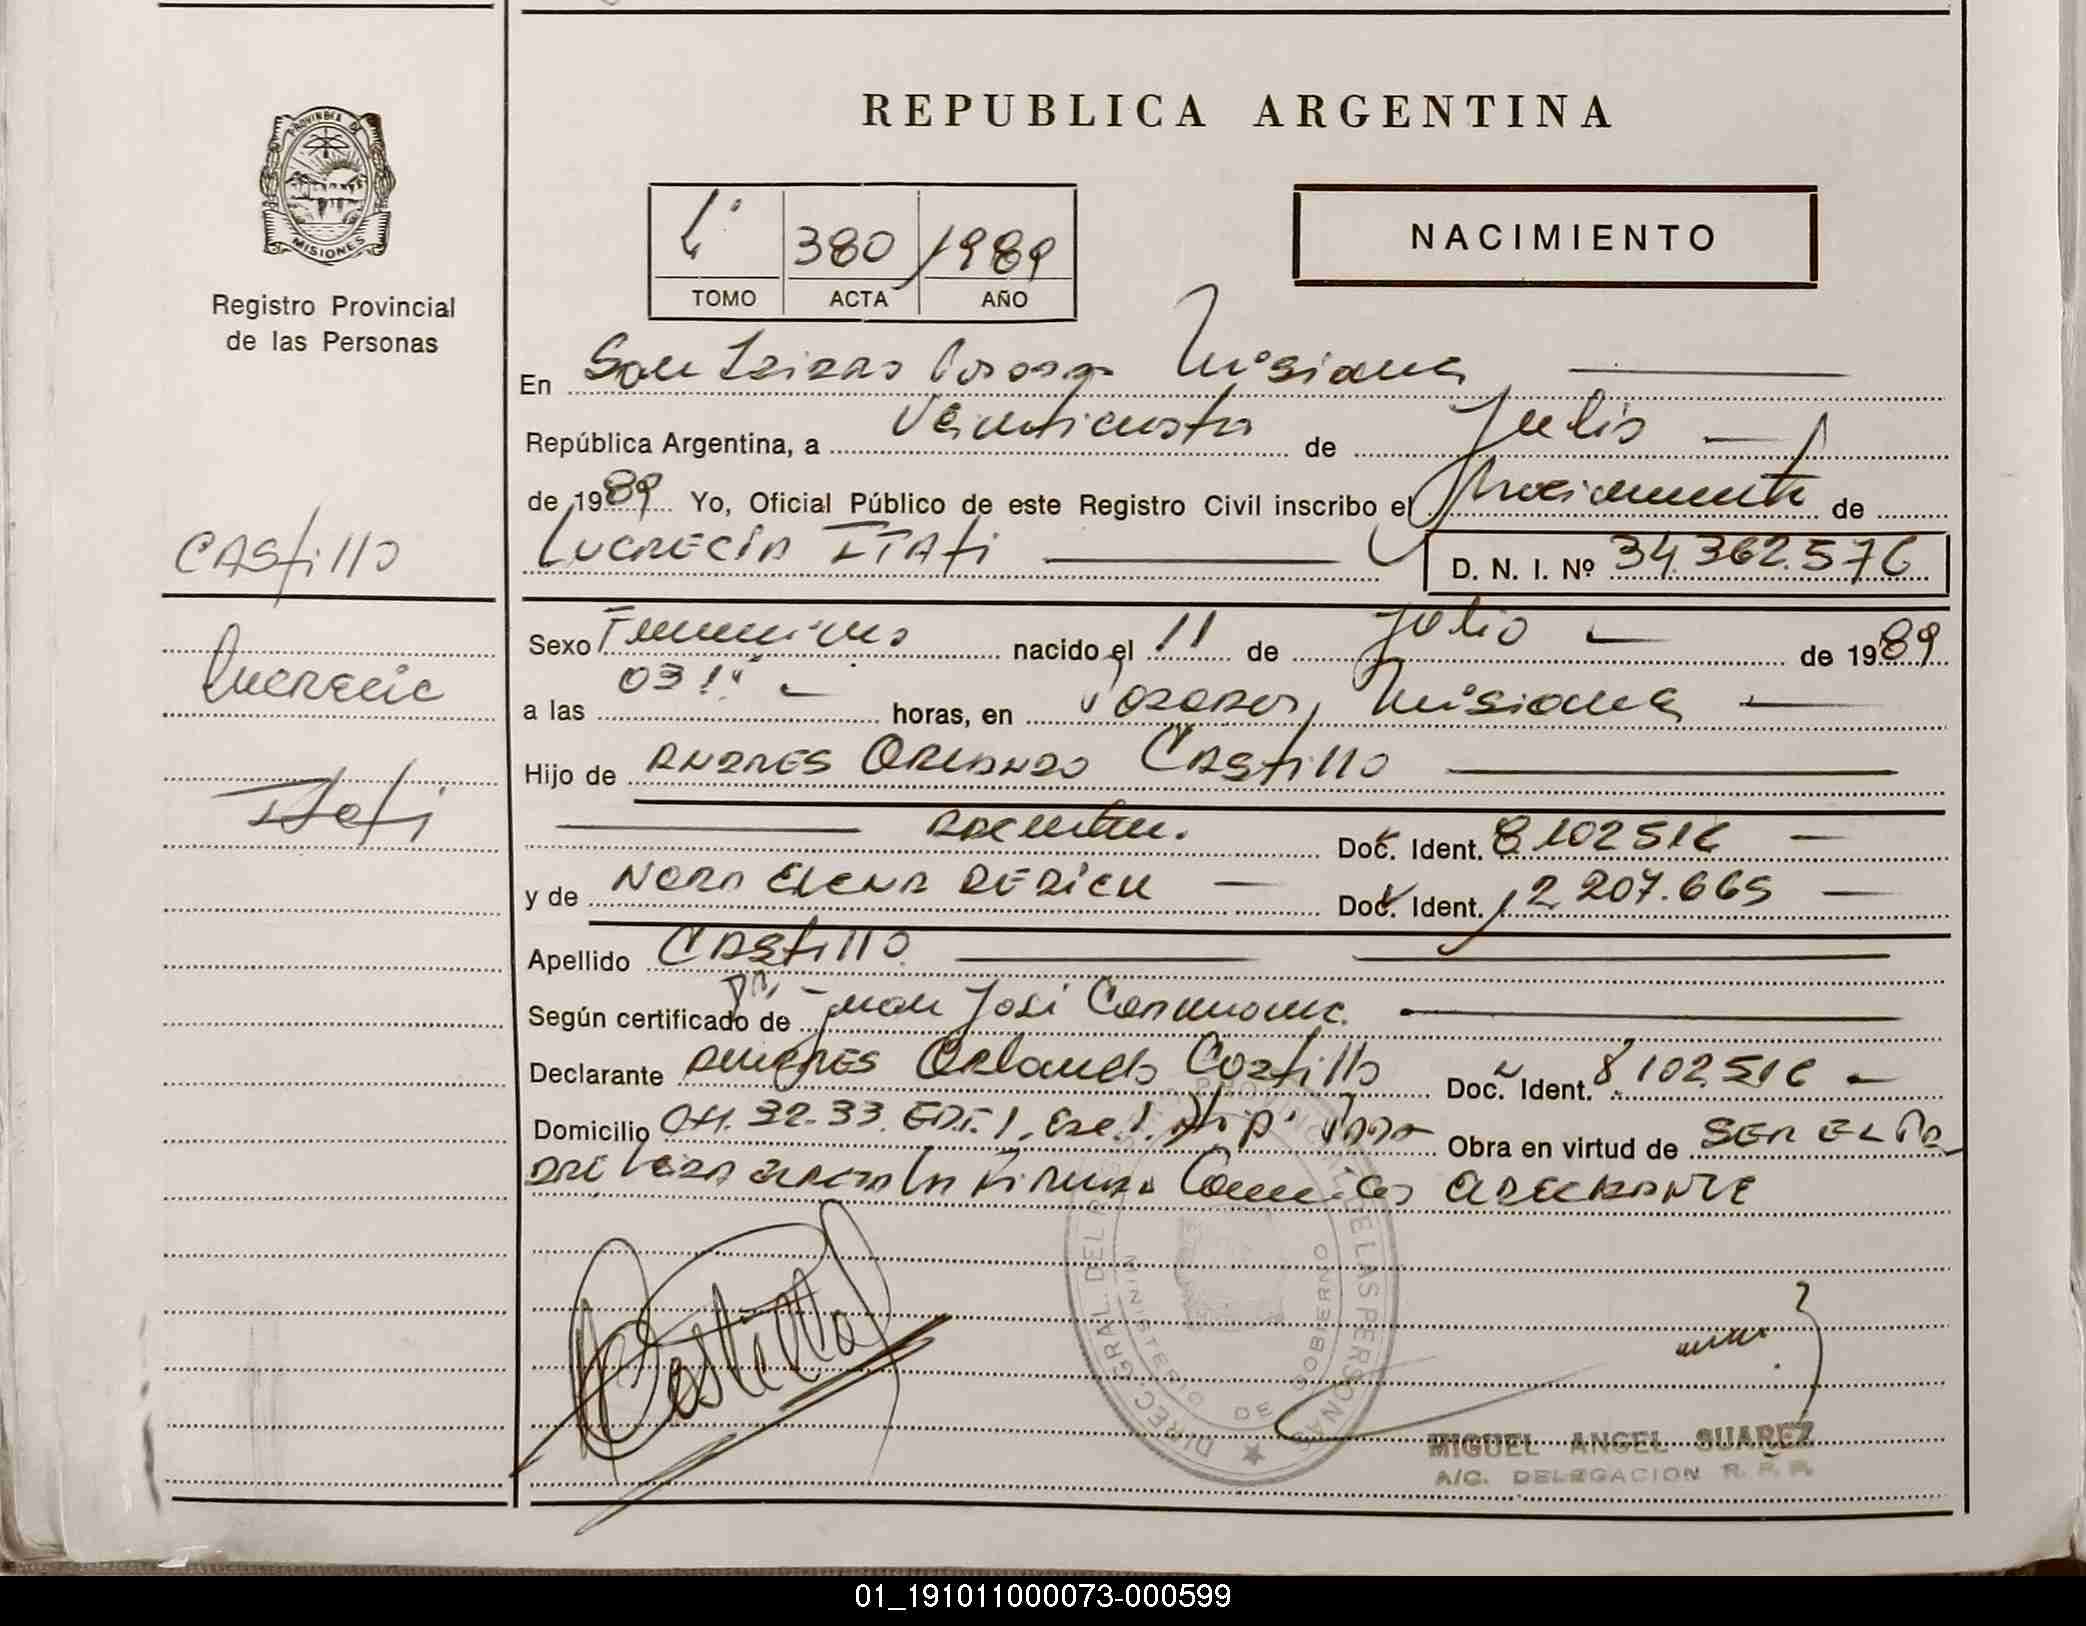 REPUBLICA ARGENTINA
PROVINCIA DE
MISIONES
Registro Provincial
de las Personas
380 1989
TOMO ACTA AÑO
NACIMIENTO
En San Misiones
República Argentina, a de Julio
de 1989 Yo, Oficial Público de este Registro Civil inscribo el Nacimiento de
LUCRECIA ITATI D. N. I. Nº 34.362.576
CAStillo
Lucrecia
Itati
Sexo Femenino nacido el 11 de Julio de 1989
a las horas, en Posadas, Misiones
Hijo de ANDRES ORLANDO CAStillo
Doc. Ident. 8.102516
y de NORA ELENA Doc. Ident. 12.207.665
Apellido CAStillo
Según certificado de Juan José
Declarante ANDRES Orlando Castillo Doc. Ident. 8.102.516
Domicilio CH. 32-33. Obra en virtud de SER EL PA
DRE
Castillo
DIREC. GRAL. DEL REG. PROVINCIAL DE LAS PERSONAS
MINISTERIO DE GOBIERNO
MIGUEL ANGEL SUAREZ
A/C. DELEGACION R. P. P.
01_191011000073-000599